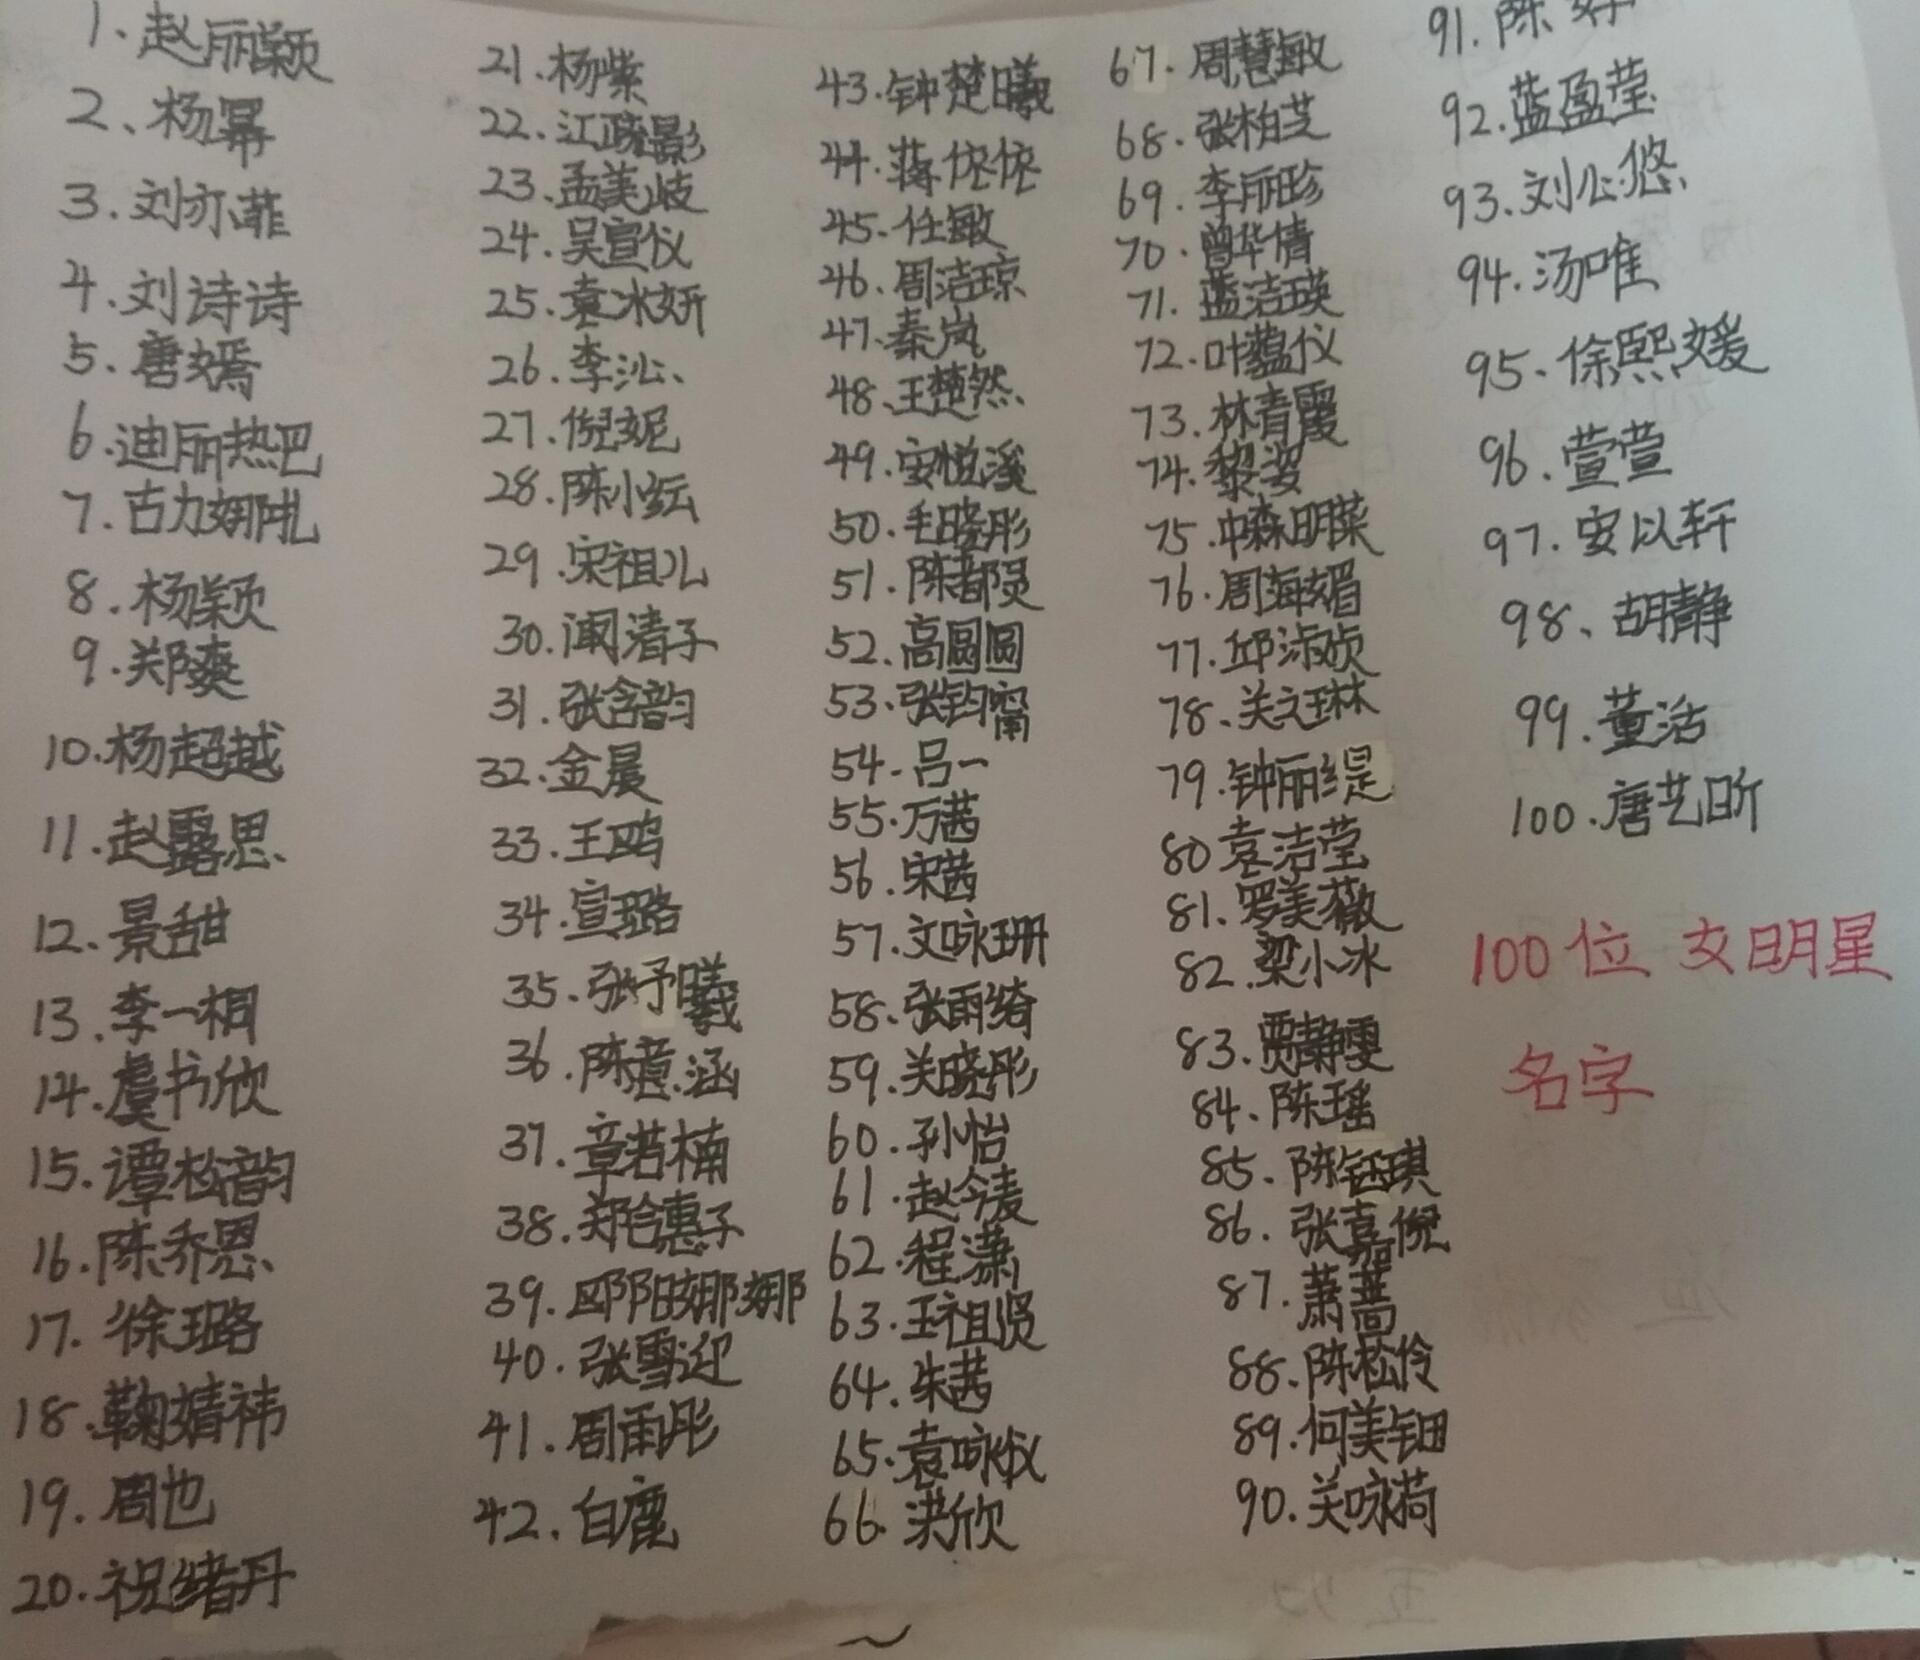 1、赵丽颖
2、杨幂
3.刘亦菲
4.刘诗诗
5.唐嫣
6.迪丽热巴
7.古力娜扎
8.杨颖
9.郑爽
10.杨超越
11.赵露思
12.景甜
13.李一桐
14.虞书欣
15.谭松韵
16.陈乔恩
17.徐璐
18.鞠婧祎
19.周也
20.祝绪丹
21.杨紫
22.江疏影
23.孟美岐
24.吴宣仪
25.袁冰妍
26.李沁
27.倪妮
28.陈小纭
29.宋祖儿
30.阚清子
31.张含韵
32.金晨
33.王鸥
34.宣璐
35.张予曦
36.陈意涵
37.章若楠
38.郑合惠子
39.欧阳娜娜
40.张雪迎
41.周雨彤
42.白鹿
43.钟楚曦
44.蒋依依
45.任敏
46.周洁琼
47.秦岚
48.王楚然
49.安悦溪
50.毛晓彤
51.陈都灵
52.高圆圆
53.张钧甯
54.吕一
55.万茜
56.宋茜
57.文咏珊
58.张雨绮
59.关晓彤
60.孙怡
61.赵今麦
62.程潇
63.王祖贤
64.朱茜
65.袁咏仪
66.洪欣
67.周慧敏
68.张柏芝
69.李丽珍
70.曾华倩
71.蓝洁瑛
72.叶蕴仪
73.林青霞
74.黎姿
75.中森明菜
76.周海媚
77.邱淑贞
78.关之琳
79.钟丽缇
80袁洁莹
81.罗美薇
82.梁小冰
83.贾静雯
84.陈瑶
85.陈钰琪
86.张嘉倪
87.萧蔷
88.陈松伶
89.何美钿
90.关咏荷
91.陈好
92.蓝盈莹
93.刘心悠
94.汤唯
95.徐熙媛
96.萱萱
97.安以轩
98、胡静
99.董洁
100.唐艺昕
100位 女明星
名字